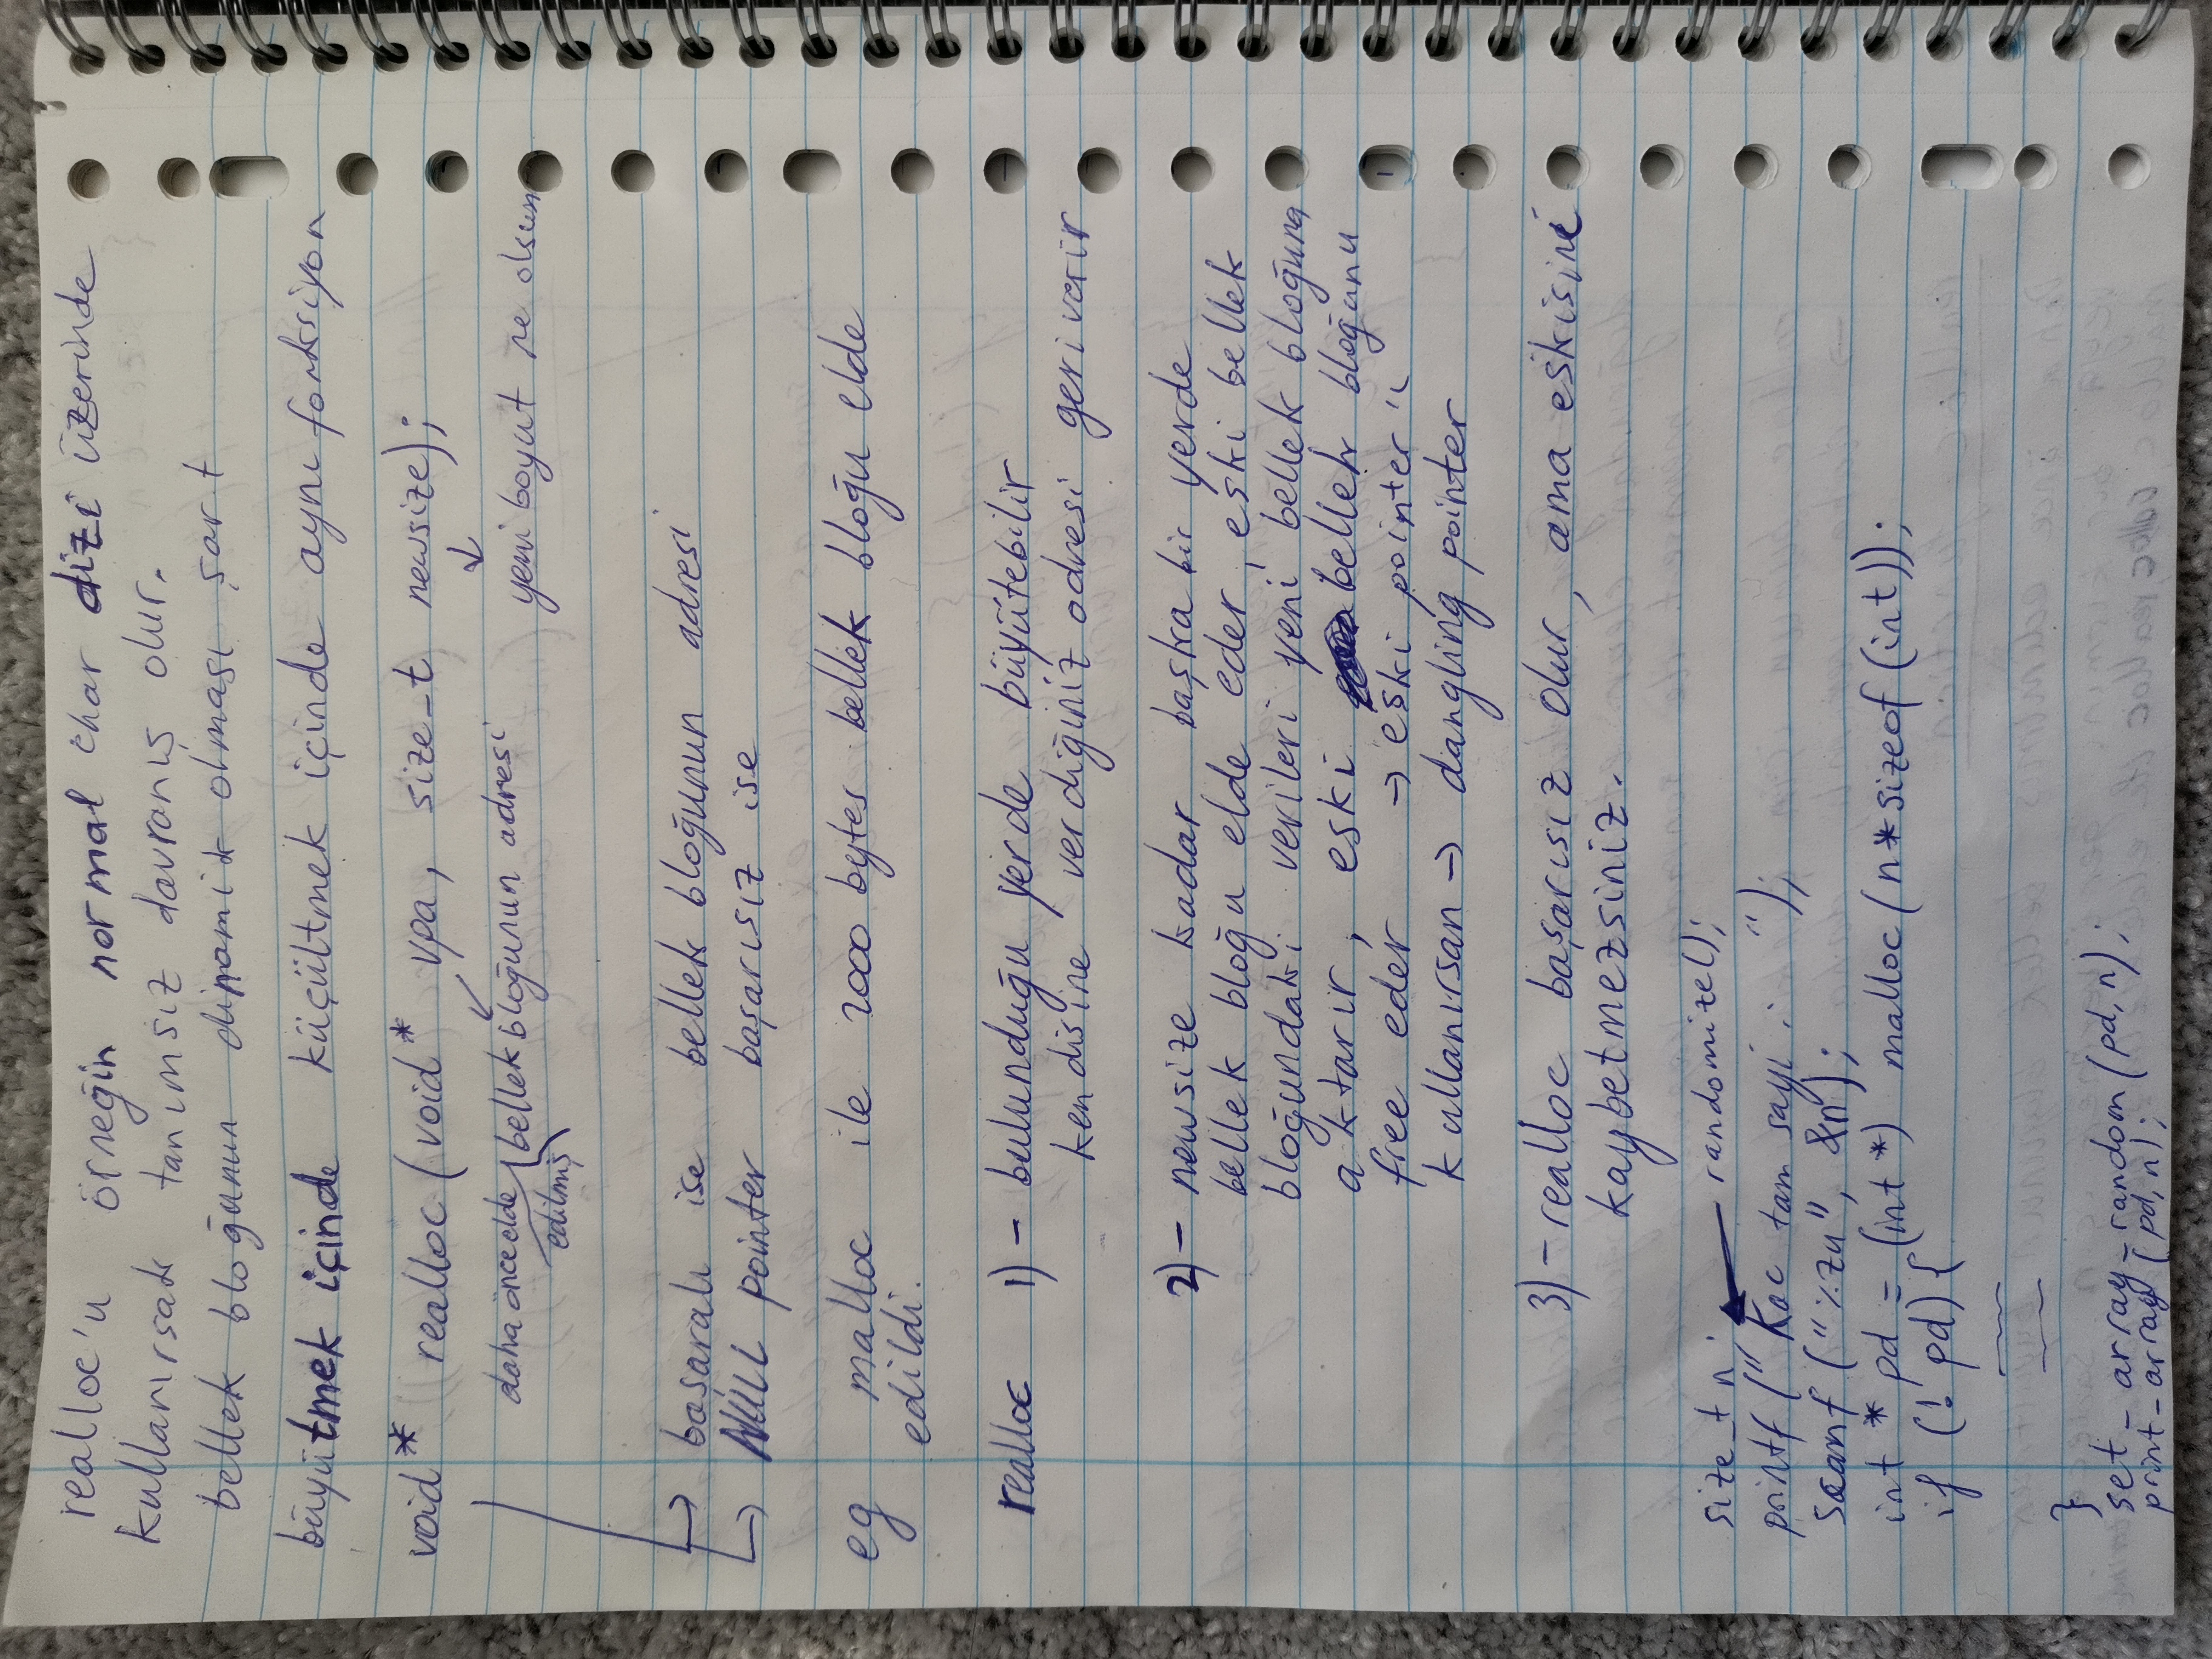 realloc'u örneğin normal char dizi üzerinde
kullanırsak tanımsız davranış olur.
bellek bloğunun dinamik olması şart
büyütmek içinde küçültmek içinde aynı fonksiyon
void* realloc(void* vpa, size_t newsize);
daha önce elde edilmiş bellek bloğunun adresi
yeni boyut ne olsun
→ başaralı ise bellek bloğunun adresi
→ NULL pointer başarısız ise
eg malloc ile 2000 bytes bellek bloğu elde
edildi.
realloc 1) - bulunduğu yerde büyütebilir
kendisine verdiğiniz adresi geri verir
2) - newsize kadar başka bir yerde
bellek bloğu elde eder, eski bellek
bloğundaki verileri yeni bellek bloğuna
aktarır, eski bellek bloğunu
free eder → eski pointer'ı
kullanırsan → dangling pointer
3) - realloc başarısız olur, ama eskisini
kaybetmezsiniz.
size_t n; ← randomize();
printf("Kac tam sayi : ");
scanf("%zu", &n);
int * pd = (int *) malloc(n*sizeof(int));
if (! pd) {
}
set_array_random(pd, n);
print_array(pd, n);